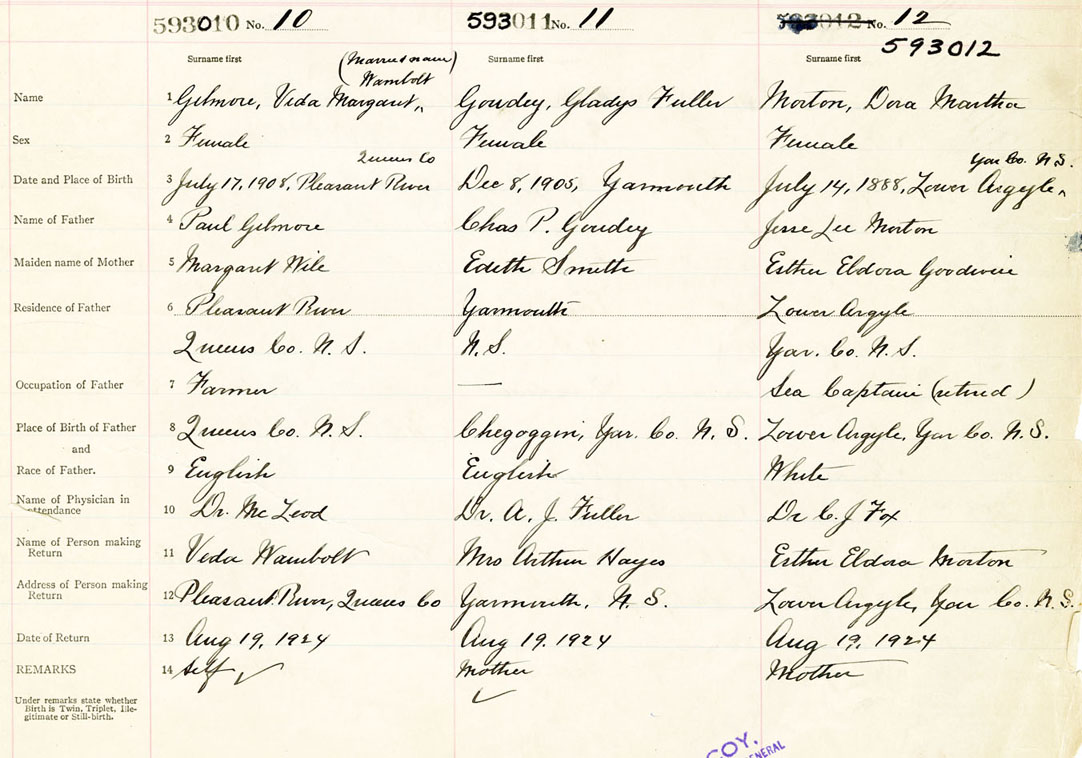 593010 No. 10 593011 No. 11 593012 No. 12
593012
Surname first (Married name) Surname first Surname first
Wambolt
Name 1 Gilmore, Veda Margaret, Goudey, Gladys Fuller Morton, Dora Martha
Sex 2 Female Female Female
Queens Co Yar Co. N.S.
Date and Place of Birth 3 July 17, 1908, Pleasant River Dec 8, 1905, Yarmouth July 14, 1888, Lower Argyle
Name of Father 4 Paul Gilmore Chas P. Goudey Jesse Lee Morton
Maiden name of Mother 5 Margaret Wile Edith Smith Esther Eldora Goodwin
Residence of Father 6 Pleasant River Yarmouth Lower Argyle
Queens Co. N.S. N.S. Yar. Co. N.S.
Occupation of Father 7 Farmer — Sea Captain (retired)
Place of Birth of Father 8 Queens Co. N.S. Chegoggin, Yar. Co. N.S. Lower Argyle, Yar Co. N.S.
and
Race of Father. 9 English English White
Name of Physician in
attendance 10 Dr. McLeod Dr. A. J. Fuller Dr C. J Fox
Name of Person making
Return 11 Veda Wambolt Mrs Arthur Hayes Esther Eldora Morton
Address of Person making
Return 12 Pleasant River, Queens Co Yarmouth, N.S. Lower Argyle, Yar Co. N.S.
Date of Return 13 Aug 19, 1924 Aug 19. 1924 Aug 19, 1924
REMARKS 14 Self Mother Mother
Under remarks state whether
Birth is Twin, Triplet, Ille-
gitimate or Still-birth.